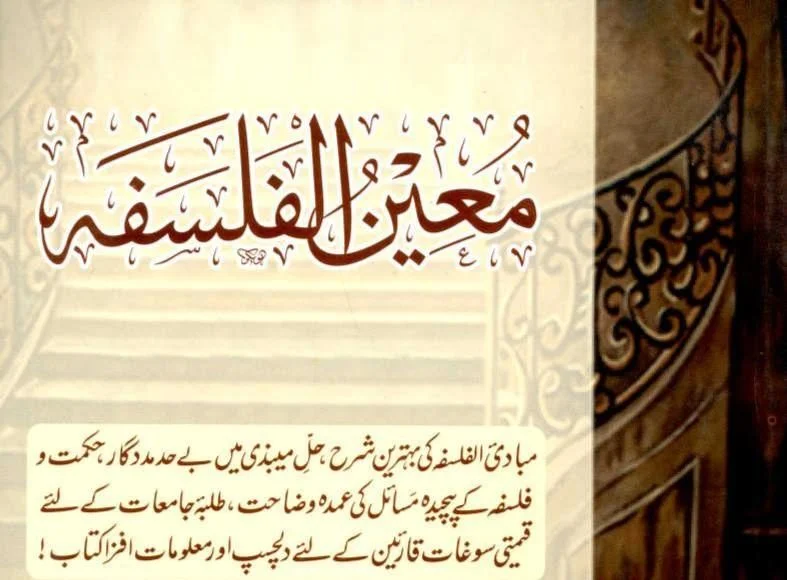 مُعِیْنُ الْفَلْسَفَہ
مبادیٔ الفلسفہ کی بہترین شرح، حلِّ میبذی میں بے حد مددگار، حکمت و
فلسفہ کے پیچیدہ مَسائل کی عمدہ وضاحت، طلبۂ جامعات کے لئے
قیمتی سوغات قارئین کے لئے دلچسپ اور معلومات افزا کتاب!